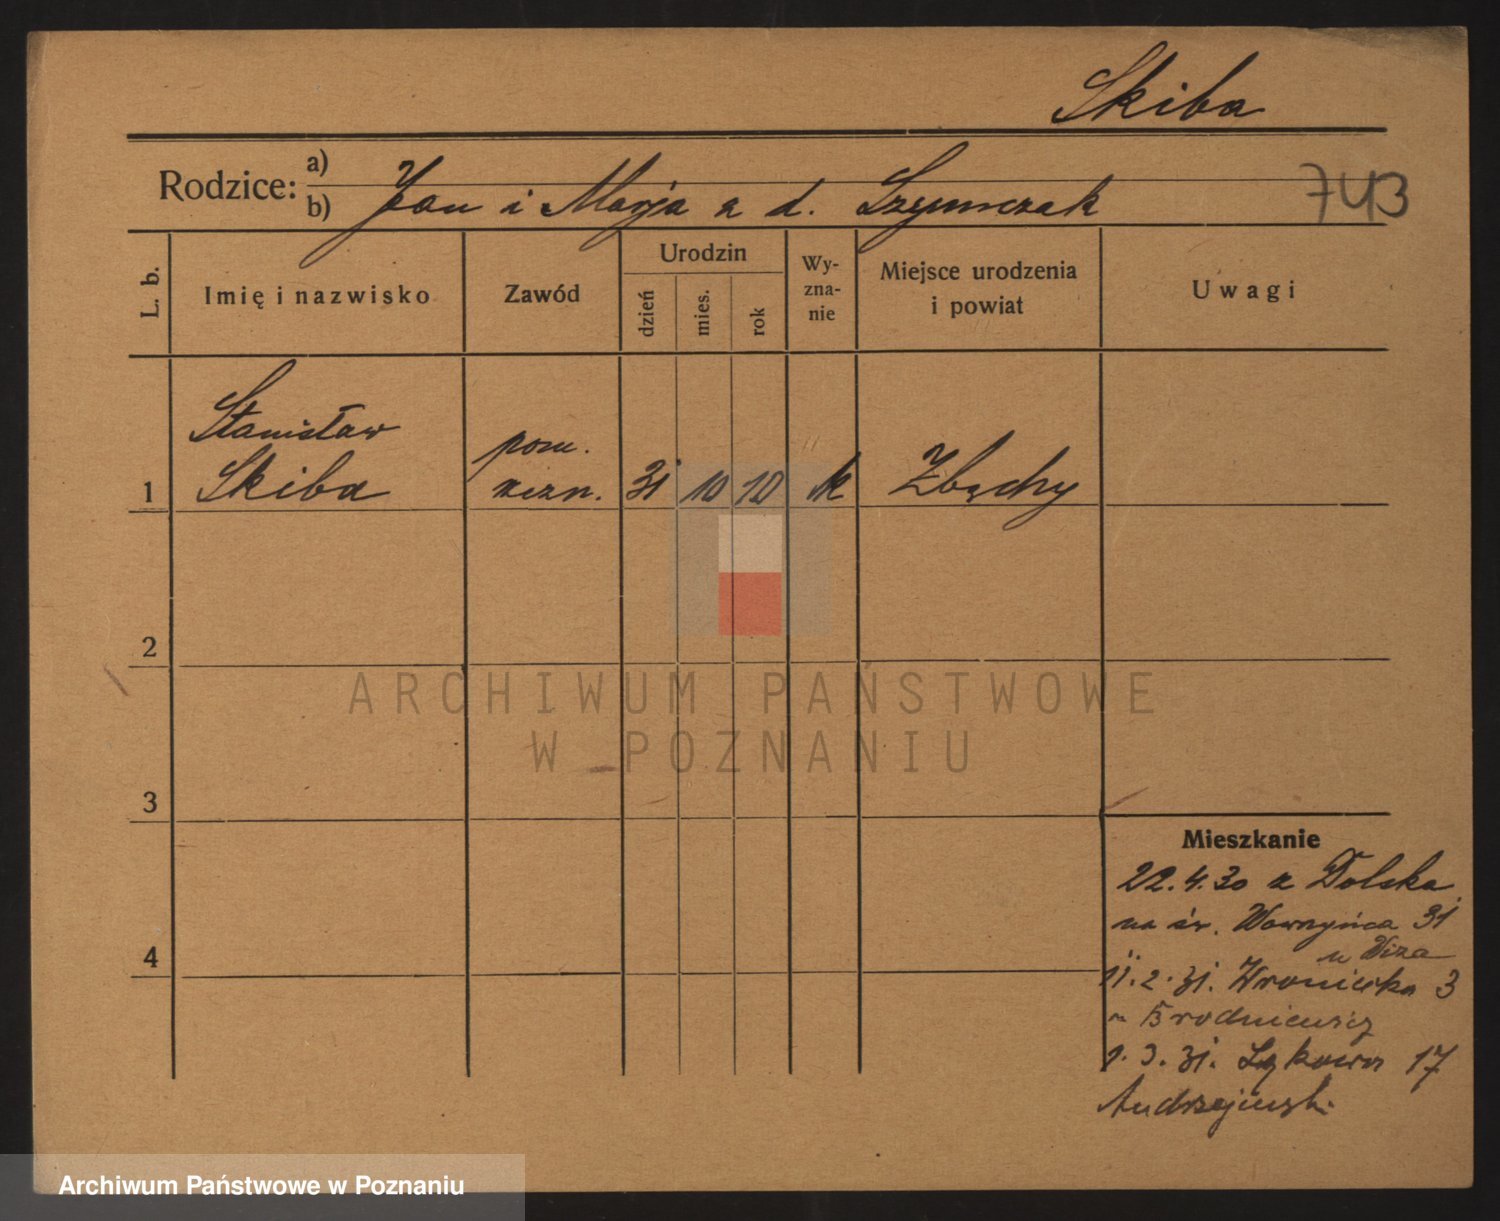 Skiba
Rodzice: a)
b) Jan i Marja z d. Szymczak
743
L. b.
Imię i nazwisko
Zawód
Urodzin
dzień
mies.
rok
Wy-
zna-
nie
Miejsce urodzenia
i powiat
Uwagi
Stanisław
1 Skiba
pom.
rzezn.
31 10 12 k Zbęchy
2
3
4
Mieszkanie
22.4.30 z Dolska
na św. Wawrzyńca 31
u Wiza
11.2.31. Wroniecka 3
Brodniewicz
1.3.31. Łąkowa 17
Andrzejewski
ARCHIWUM PAŃSTWOWE
W POZNANIU
Archiwum Państwowe w Poznaniu